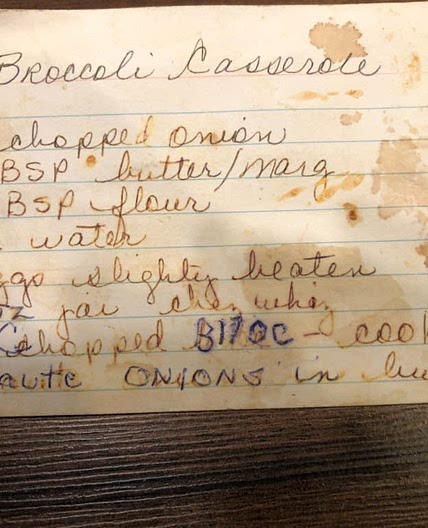 Broccoli Casserole
chopped onion
BSP butter/marg
BSP flour
water
ggs slightly beaten
oz jar chez whiz
chopped BROC - cook
aute ONIONS in bu